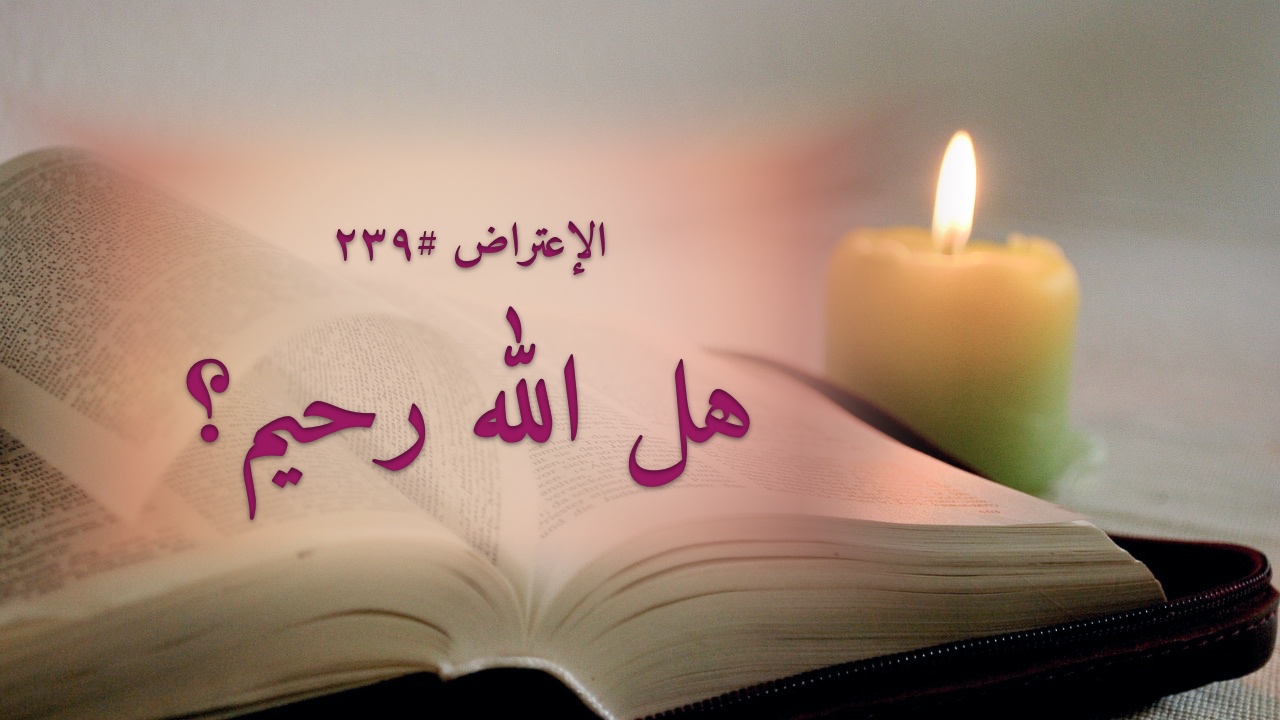 الإعتراض #٢٣٩
هل الله رحيم؟